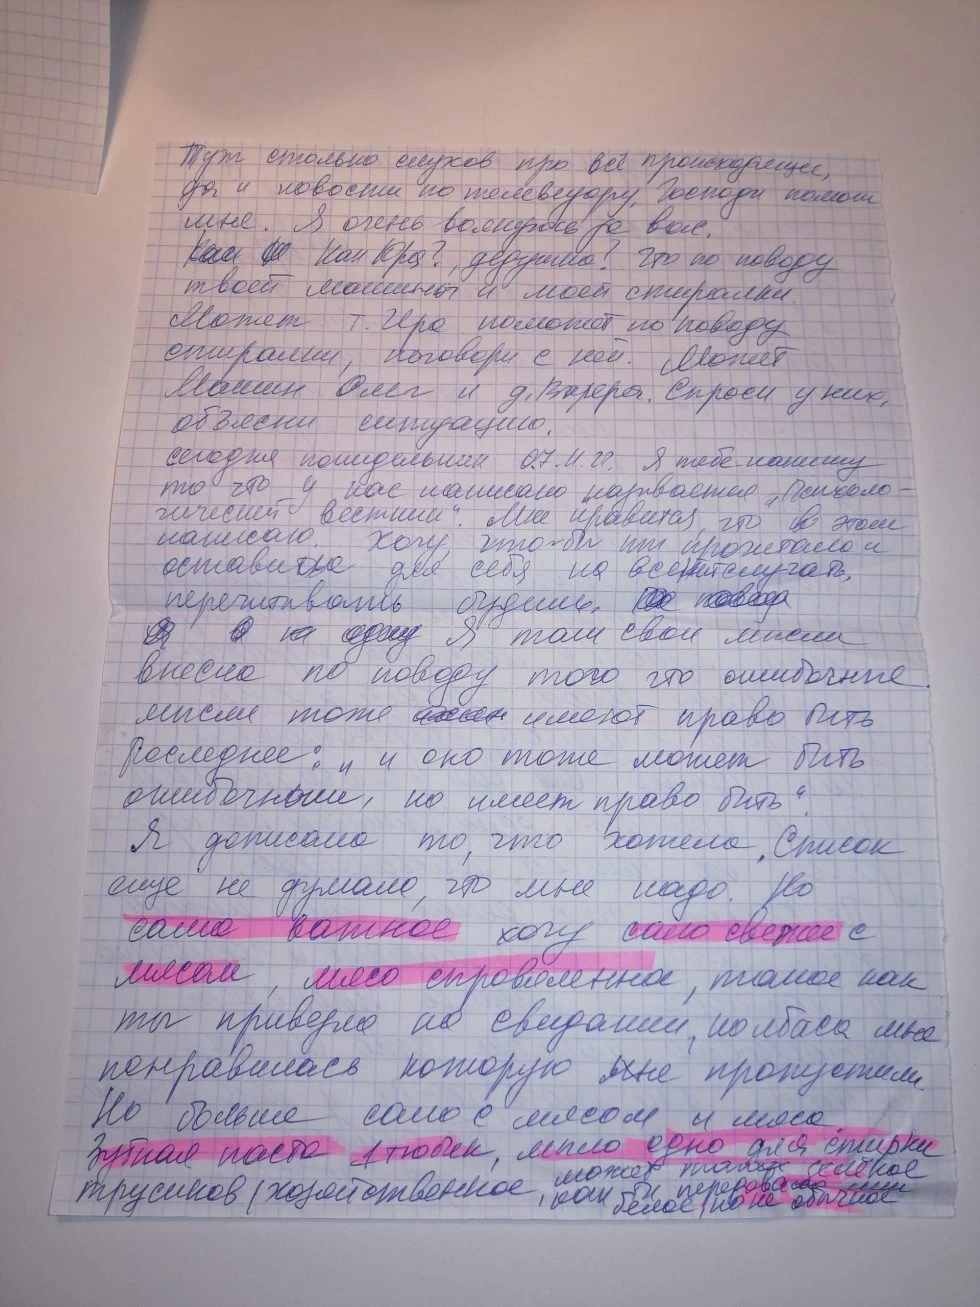 Тут столько слухов про всё происходящее,
да и новости по телевизору, Господи помоги
мне. Я очень волнуюсь за вас.
Как Юра?, дедушка? Что по поводу
твоей машины и моей стиралки.
Может т. Ира поможет по поводу
стиралки, поговори с ней. Может
Машин Олег и д. Валера. Спроси у них,
объясни ситуацию.
сегодня понидельник 07.11.22. Я тебе напишу
то что у нас написано называется „Психоло-
гический вестник“. Мне нравится, что в этом
написано. Хочу, что-бы ты прочитала и
оставила для себя на
перечитывать будешь.
Я там свои мысли
внесла по поводу того что ошибочные
мысли тоже имеют право быть
Последнее: „и оно тоже может быть
ошибочным, но имеет право быть“
Я дописала то, что хотела. Список
еще не думала, что мне надо. Но
само важное хочу сало свежее с
мясом, мясо
ты привезла на свидании, колбаса мне
понравилась которую мне пропустили.
Но больше сало с мясом и мясо
Зубная паста 1 тюбик, мыло одно для стирки
трусиков (хозяйственное, может также зелёное
или бы
белое, но не обычное